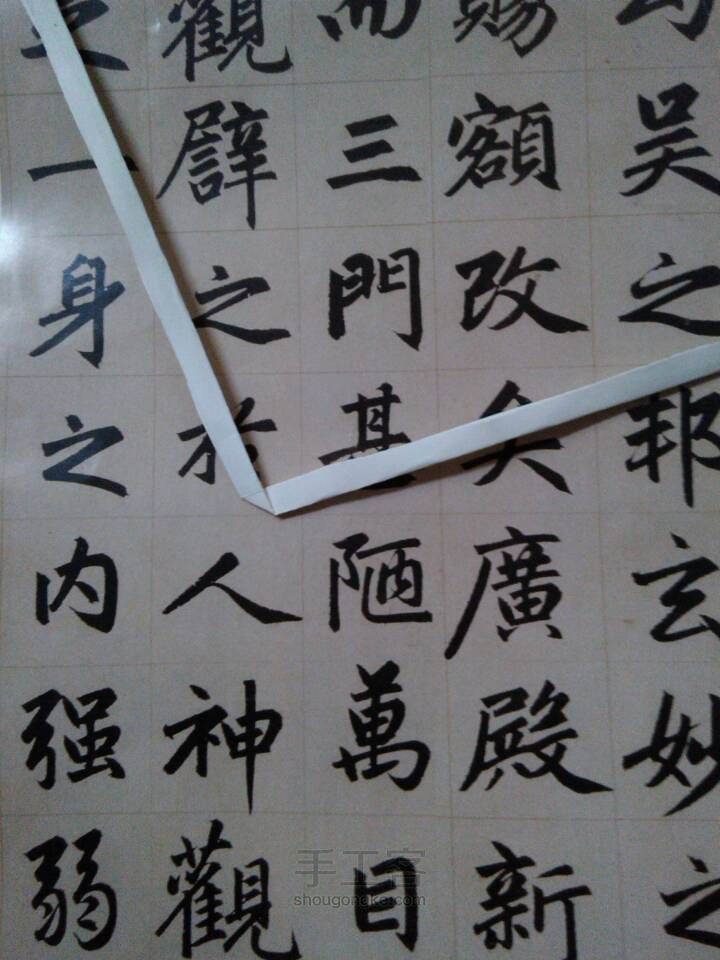 吴之邦玄妙之
賜額改矣廣殿新
而三門甚陋萬目
觀譬之於人神觀
一身之内强弱
手工客
shougongke.com